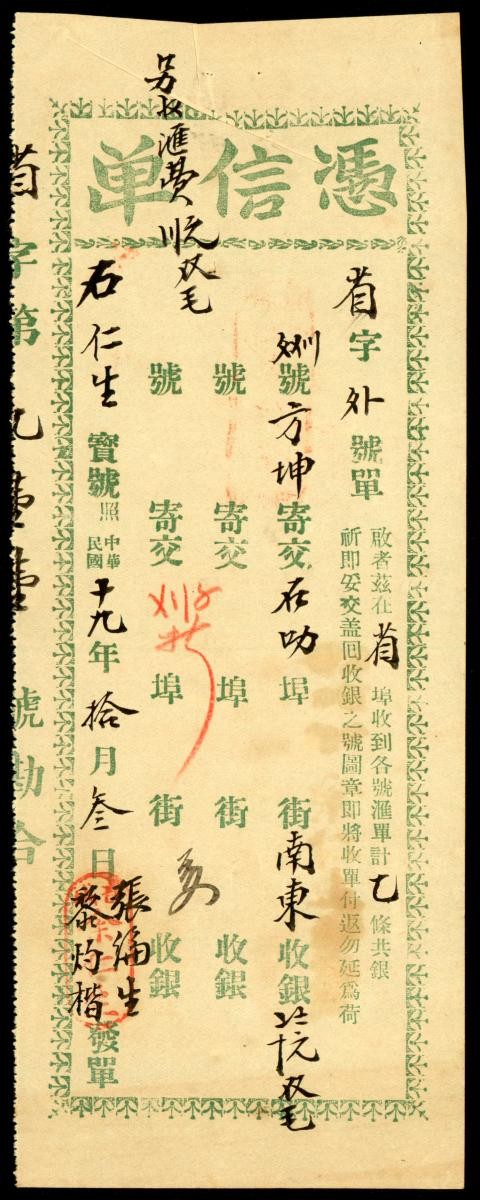 憑信单
省字外號單
啟者茲在省埠收到各號滙單計乙條共銀
祈即妥交盖回收銀之號圖章即將收單付返勿延爲荷
號方坤寄交石叻埠街南東收銀双毛
號寄交埠街收銀
號寄交埠街收銀
另收滙費双毛
石仁生寶號照
中華民國十九年拾月叁日
張倫生
黎灼楷
發單
省字第九壹壹號勘合